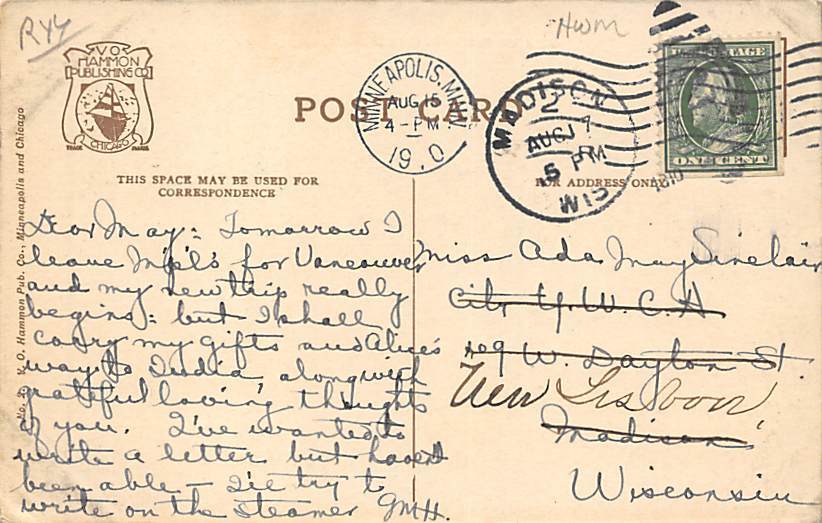 RY4
HWM
V O
HAMMON
PUBLISHING CO
CHICAGO
TRADE MARK
POST CARD
MINNEAPOLIS, MINN.
AUG 15
4-PM
19.0
MADISON
2
AUG 17
5 PM
WIS
1910
U.S. POSTAGE
ONE CENT
THIS SPACE MAY BE USED FOR
CORRESPONDENCE
FOR ADDRESS ONLY
V. O. Hammon Pub. Co., Minneapolis and Chicago
Dear May: Tomorrow I
leave M'pl's for Vancouver
and my new trip really
begins: but I shall
carry my gifts and Alice's
way to India along with
grateful loving thoughts
of you. I've wanted to
write a letter but havent
been able — I'll try to
write on the steamer GMH.
Miss Ada May Sinclair
City Y.W.C.A
W. Dayton St.
New Lisbon
Madison
Wisconsin